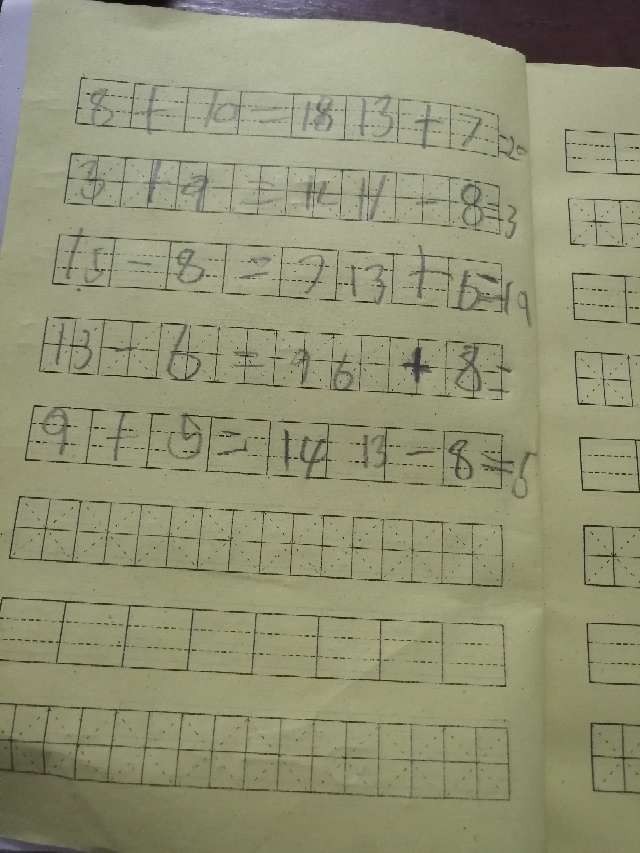 8 + 10 = 18 13 + 7 = 20
3 + 9 = 12 11 - 8 = 3
15 - 8 = 7 13 + 6 = 19
13 - 6 = 9 6 + 8 =
9 + 5 = 14 13 - 8 = 5